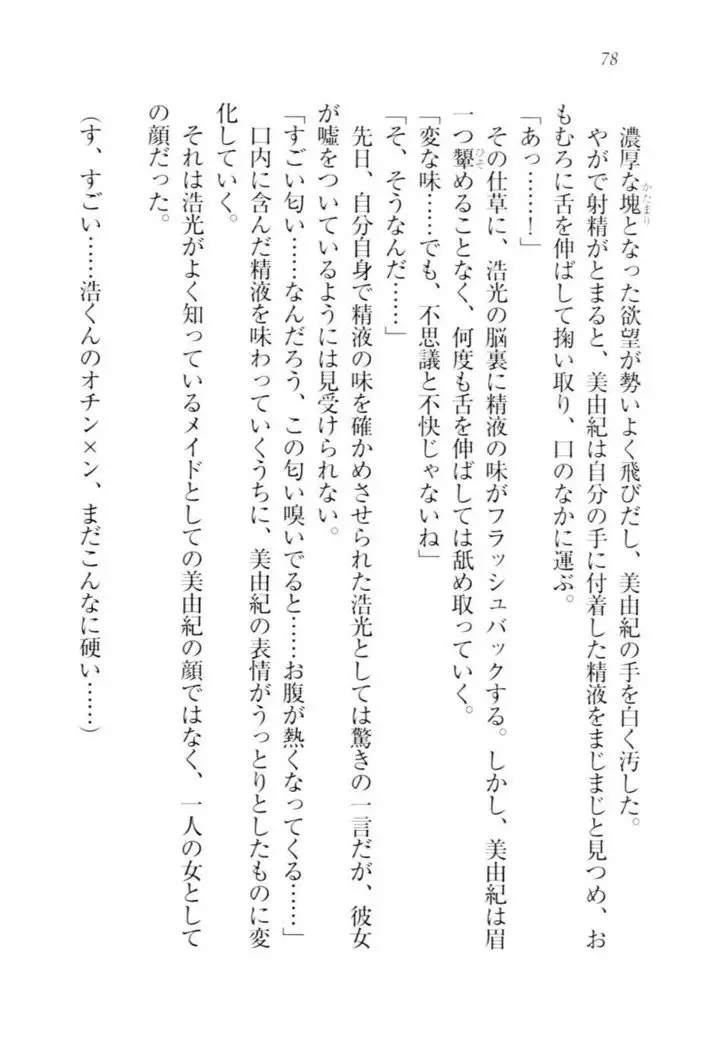 78
濃厚な塊となった欲望が勢いよく飛びだし、美由紀の手を白く汚した。
かたまり
やがで射精がとまると、美由紀は自分の手に付着した精液をまじまじと見つめ、お
もむろに舌を伸ばして掬い取り、口のなかに運ぶ。
「あっ……！」
その仕草に、浩光の脳裏に精液の味がフラッシュバックする。しかし、美由紀は眉
一つ顰めることなく、何度も舌を伸ばしては舐め取っていく。
ひそ
「変な味……でも、不思議と不快じゃないね」
「そ、そうなんだ……」
先日、自分自身で精液の味を確かめさせられた浩光としては驚きの一言だが、彼女
が嘘をついているようには見受けられない。
「すごい匂い……なんだろう、この匂い嗅いでると……お腹が熱くなってくる……」
口内に含んだ精液を味わっていくうちに、美由紀の表情がうっとりとしたものに変
化していく。
それは浩光がよく知っているメイドとしての美由紀の顔ではなく、一人の女として
の顔だった。
（す、すごい……浩くんのオチン×ン、まだこんなに硬い……）